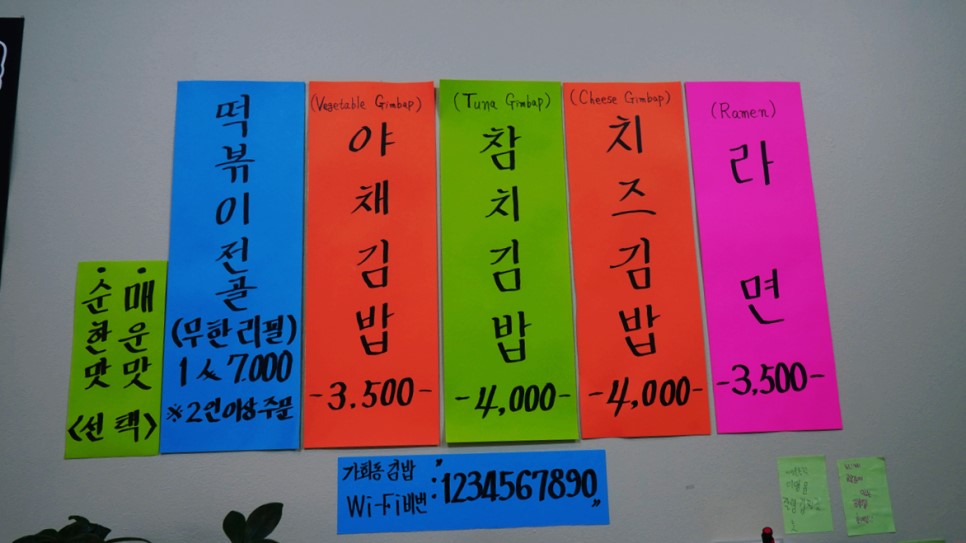 순한맛
매운맛
<선택>
떡볶이전골
(무한리필)
1人 7.000
※2인이상주문
(Vegetable Gimbap)
야채김밥
-3.500-
(Tuna Gimbap)
참치김밥
-4,000-
(Cheese Gimbap)
치즈김밥
-4,000-
(Ramen)
라면
-3,500-
가회동김밥
Wi-Fi비번 : "1234567890"